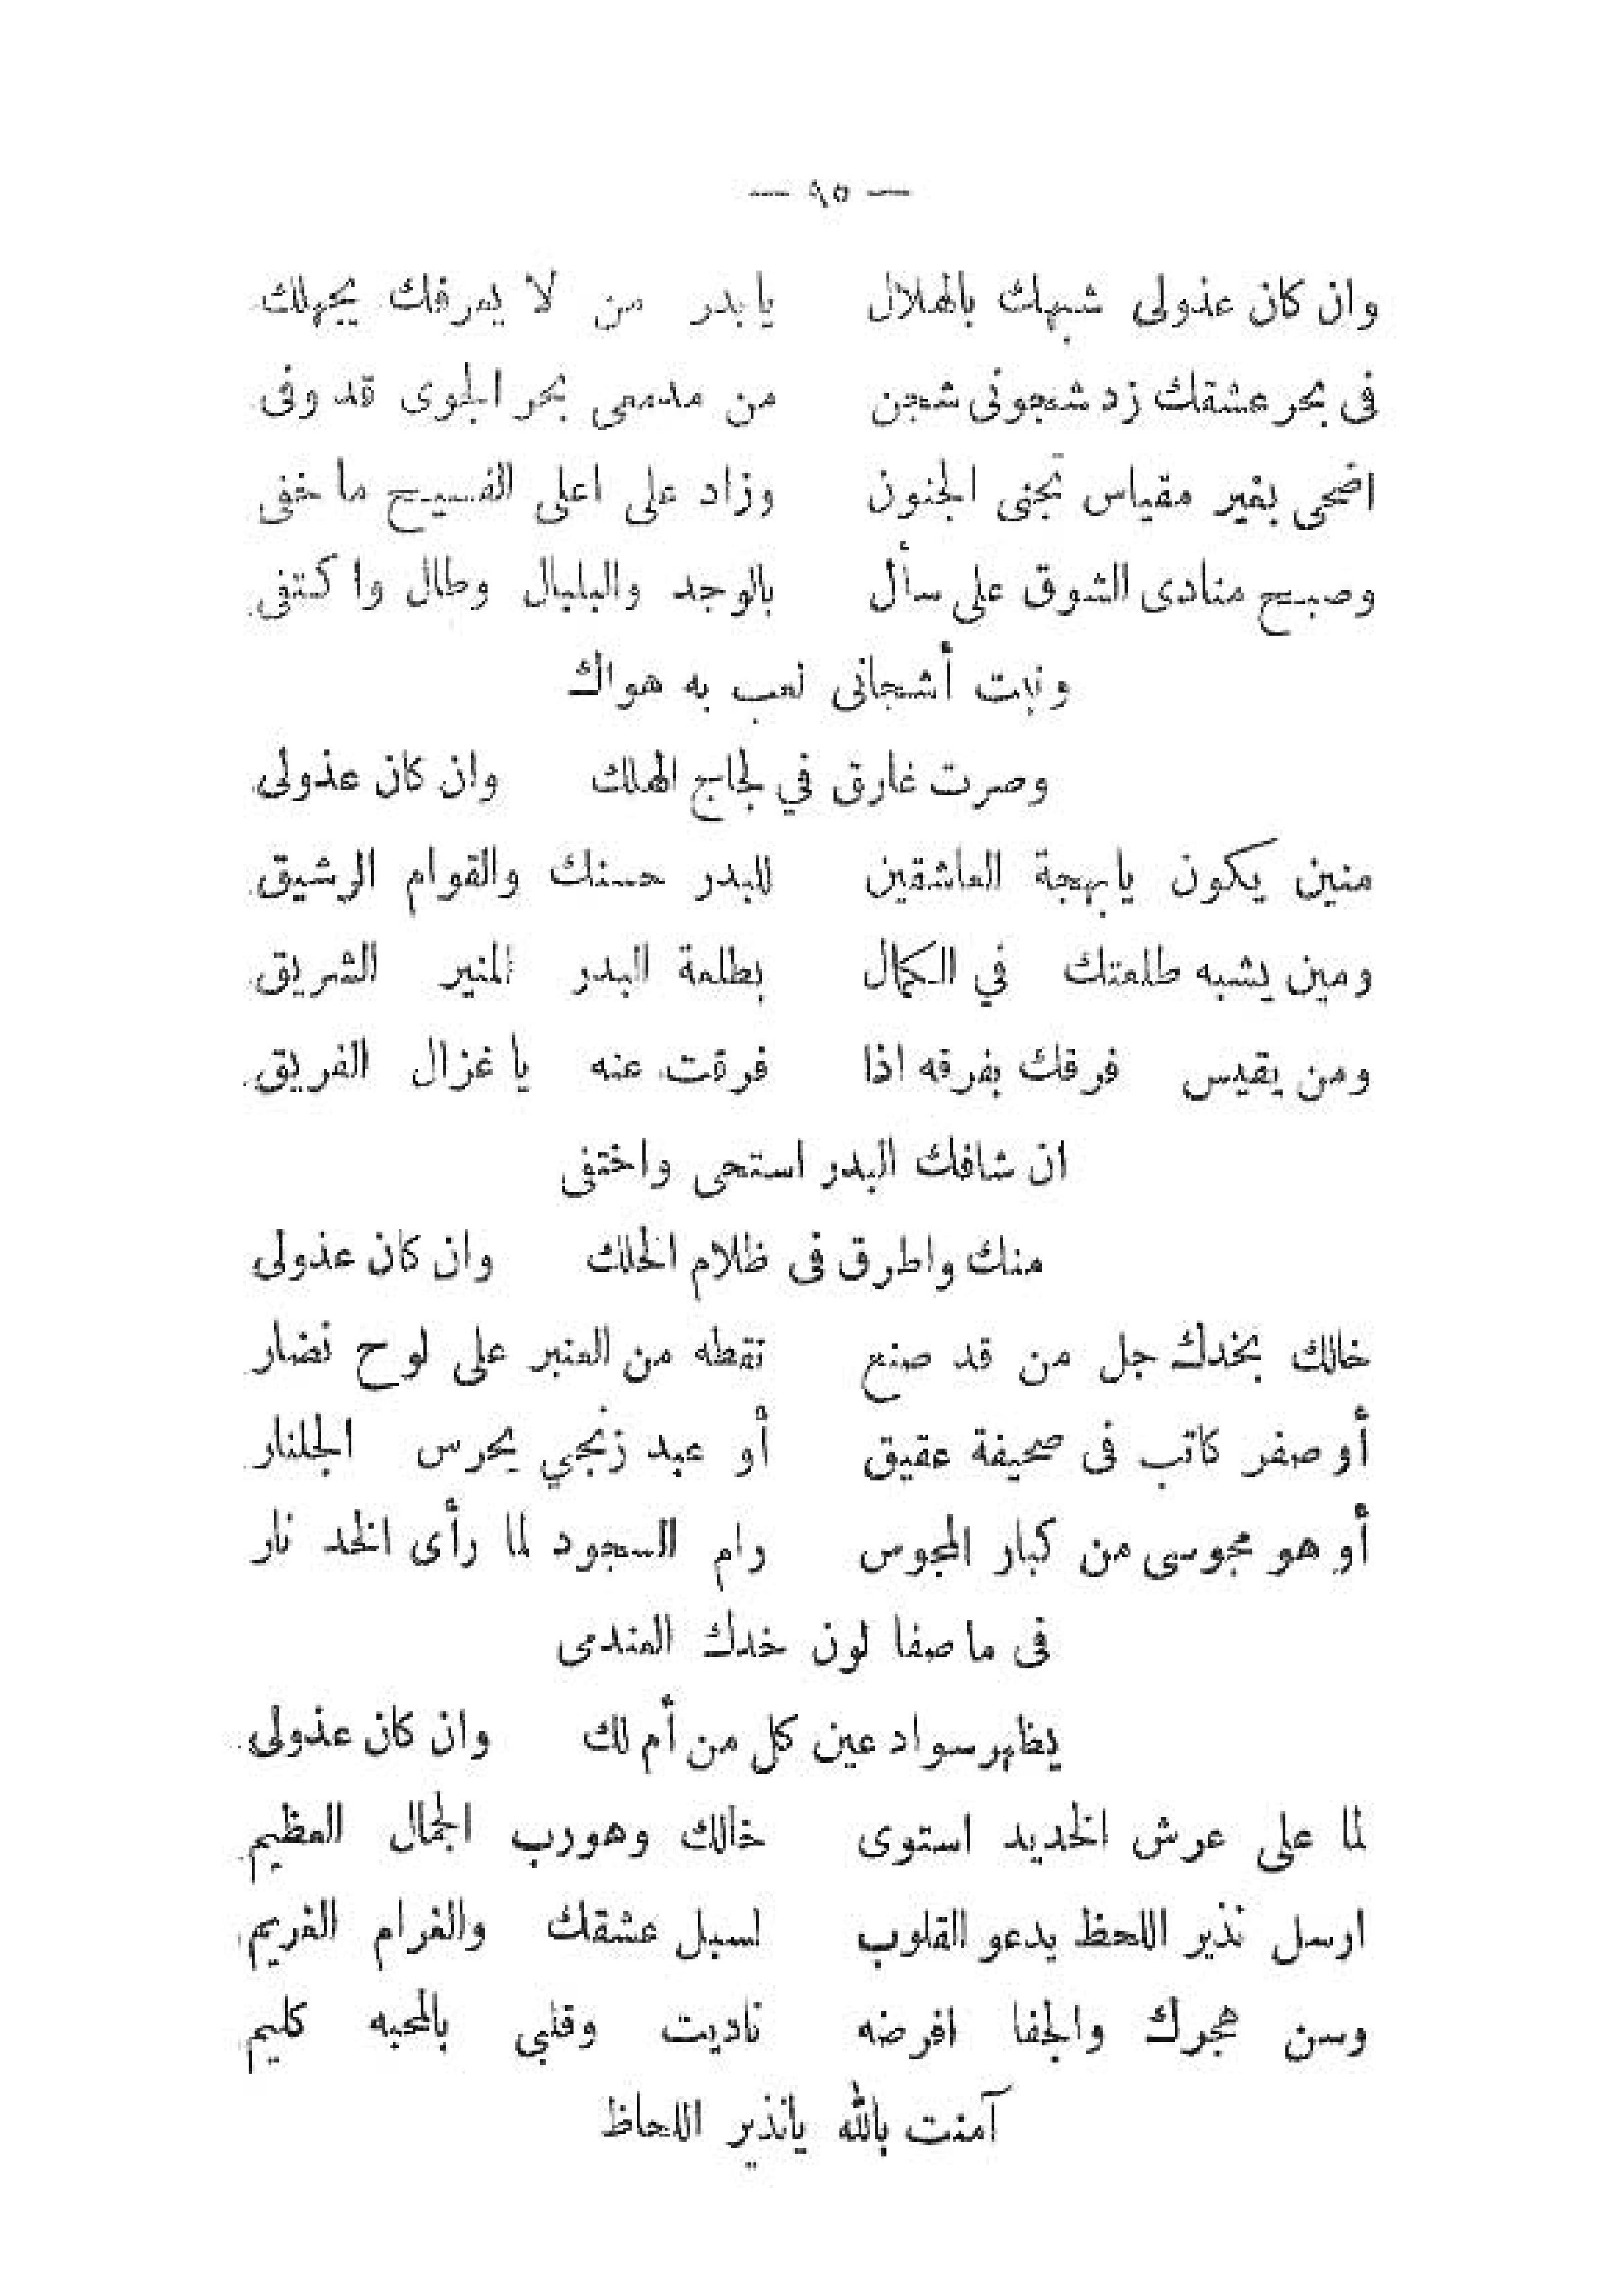 — ٩٥ —
وان كان عذولى شبهك بالهلال يابدر من لا يعرفك يجهلك
فى بحر عشقك زد شجونى شجن من مدمعى بحر الجوى قد وفى
اضحى بغير مقياس تجنى الجنون وزاد على اعلى الفسيح ما خفى
وصبح منادى الشوق على سأل بالوجد والبلبال وطال واكتفى
ونبت أشجانى لعب به هواك
وصرت غارق في لجاج الهلك وان كان عذولى
منين يكون يابهجة العاشقين للبدر حسنك والقوام الرشيق
ومين يشبه طلعتك في الكمال بطلعة البدر المنير الشريق
ومن يقيس فرقك بفرقه اذا فرقت عنه يا غزال الفريق
ان شافك البدر استحى واختفى
منك واطرق فى ظلام الحلك وان كان عذولى
خالك بخدك جل من قد صنع نقطه من العنبر على لوح نضار
أو صفر كاتب فى صحيفة عقيق أو عبد زنجي يحرس الجلنار
أو هو مجوسى من كبار المجوس رام السجود لما رأى الخد نار
فى ما صفا لون خدك العندمى
يظهر سواد عين كل من أم لك وان كان عذولى
لما على عرش الخديد استوى خالك وهورب الجمال العظيم
ارسل نذير اللحظ يدعو القلوب لسبل عشقك والغرام الغريم
وسن هجرك والجفا افرضه ناديت وقلبى بالمحبه كليم
آمنت بالله يانذير اللحاظ